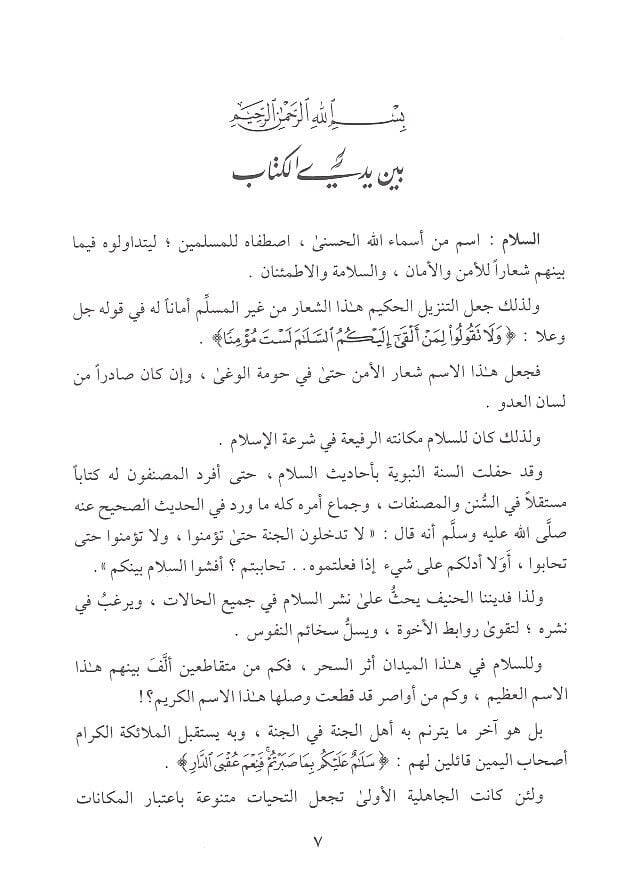 بِسْمِ اللهِ الرَّحْمٰنِ الرَّحِيمِ
بين يدي الكتاب
السلام : اسم من أسماء الله الحسنىٰ ، اصطفاه للمسلمين ؛ ليتداولوه فيما
بينهم شعاراً للأمن والأمان ، والسلامة والاطمئنان .
ولذلك جعل التنزيل الحكيم هـٰذا الشعار من غير المسلِّم أماناً له في قوله جل
وعلا : ﴿ وَلَا نَقُولُواْ لِمَنْ أَلْقَىٰٓ إِلَيْكُمُ ٱلسَّلَـٰمَ لَسْتَ مُؤْمِنًا ﴾ .
فجعل هـٰذا الاسم شعار الأمن حتىٰ في حومة الوغىٰ ، وإن كان صادراً من
لسان العدو .
ولذلك كان للسلام مكانته الرفيعة في شرعة الإسلام .
وقد حفلت السنة النبوية بأحاديث السلام ، حتى أفرد المصنفون له كتاباً
مستقلاً في السُّنن والمصنفات ، وجماع أمره كله ما ورد في الحديث الصحيح عنه
صلَّى الله عليه وسلَّم أنه قال : « لا تدخلون الجنة حتىٰ تؤمنوا ، ولا تؤمنوا حتى
تحابوا ، أَوَلا أدلكم على شيء إذا فعلتموه . . تحاببتم ؟ أفشوا السلام بينكم » .
ولذا فديننا الحنيف يحثُّ علىٰ نشر السلام في جميع الحالات ، ويرغبُ في
نشره ؛ لتقوىٰ روابط الأخوة ، ويسلُّ سخائم النفوس .
وللسلام في هـٰذا الميدان أثر السحر ، فكم من متقاطعين ألَّفَ بينهم هـٰذا
الاسم العظيم ، وكم من أواصر قد قطعت وصلها هـٰذا الاسم الكريم ؟!
بل هو آخر ما يترنم به أهل الجنة في الجنة ، وبه يستقبل الملائكة الكرام
أصحاب اليمين قائلين لهم : ﴿ سَلَـٰمٌ عَلَيْكُم بِمَا صَبَرْتُمْ ۚ فَنِعْمَ عُقْبَى ٱلدَّارِ ﴾ .
ولئن كانت الجاهلية الأولىٰ تجعل التحيات متنوعة باعتبار المكانات
٧